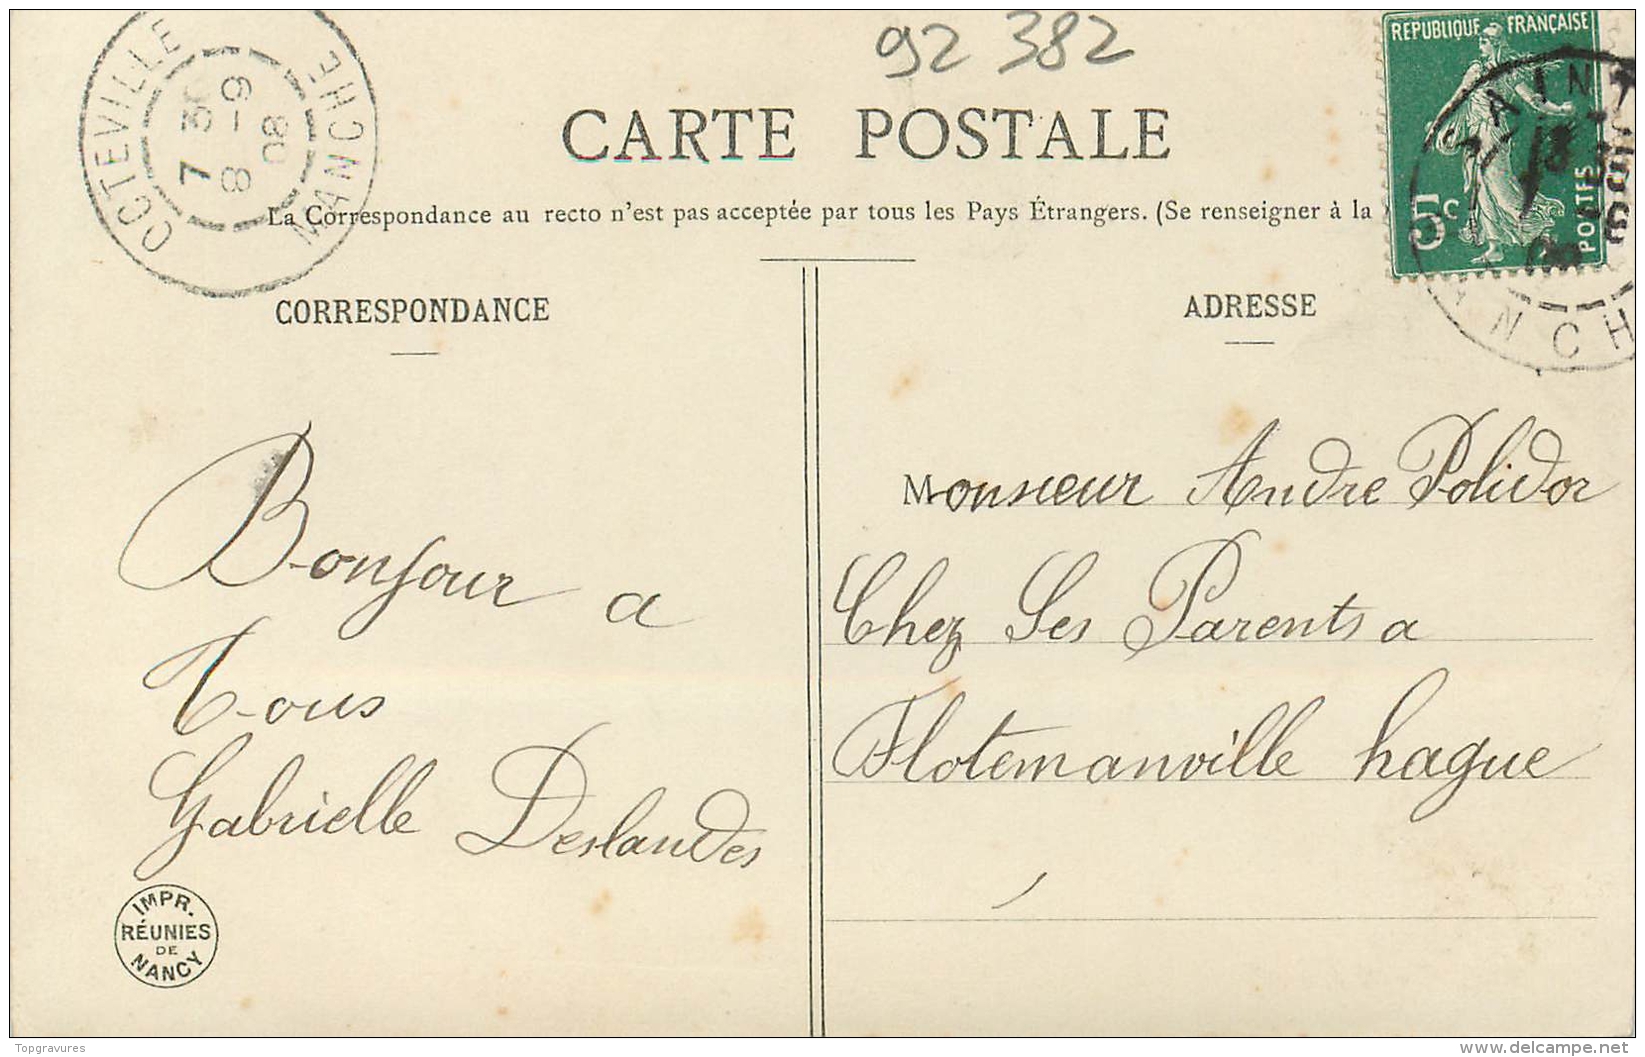 92 382
CARTE POSTALE
La Correspondance au recto n'est pas acceptée par tous les Pays Étrangers. (Se renseigner à la
OCTEVILLE
MANCHE
7 30
8 - 9
08
REPUBLIQUE FRANÇAISE
5c
POSTES
SAINT
MANCH
CORRESPONDANCE
Bonjour a
Tous
Gabrielle Deslandes
IMPR.
RÉUNIES
DE
NANCY
ADRESSE
Monsieur Andre Polidor
Chez Ses Parents a
Flotemanville hague
Topgravures
delcampe.net